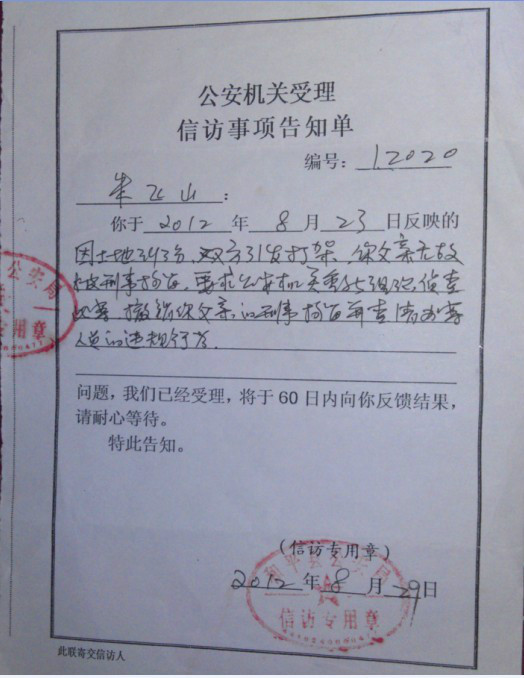 公安机关受理
信访事项告知单
编号：12020
朱飞山：
你于2012年8月23日反映的
因土地纠纷，双方引发打架，你父亲无故
被刑事拘留，要求公安机关重新组织侦查
此案，撤销你父亲的刑事拘留并查清办案
人员的违规行为.
问题，我们已经受理，将于60日内向你反馈结果，
请耐心等待。
特此告知。
公安局
专用章
（信访专用章）
和平县公安局
2012年8月29日
信访专用章
此联寄交信访人